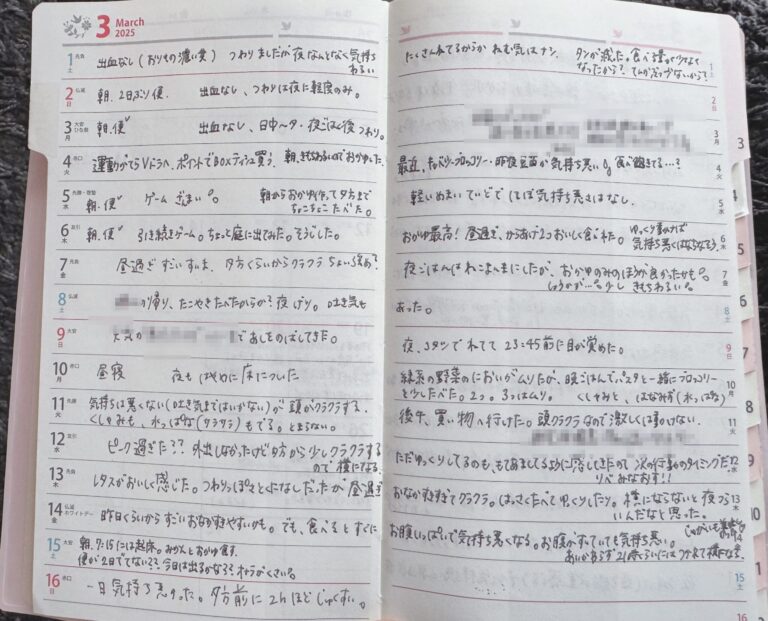 3 March
2025
1 土 先負 出血なし(おりもの濃い黄) つわりましだが夜なんとなく気持ち
わるい
2 日 仏滅 朝、2日ぶり便. 出血なし、つわりは夜に軽度のみ。
3 月 大安 ひな祭 朝、便 出血なし、日中〜夕・夜ごはん後つわり。
4 火 赤口 運動がてらVドラへ、ポイントでBOXティシュ買う. 朝、きもちわるいのでおかゆにした。
5 水 先勝・啓蟄 朝、便 ゲームざんまい。 朝からおかゆ作って夕方まで
ちょこちょこたべた。
6 木 友引 朝、便 引き続きゲーム。ちょっと庭に出てみた。そうじした。
7 金 先負 昼過ぎ すいすいよ、夕方くらいからクラクラ ちょい強め?
8 土 仏滅 の帰り、たこやきたべたからか?夜げり。吐き気も
9 日 大安 であしをのばしてきた。
10 月 赤口 昼寝 夜も はやめに床についた
11 火 先勝 気持ちは悪くない(吐き気まではいかない)が 頭がクラクラする.
くしゃみも、水っぱな(サラサラ)もでる。とまらない。
12 水 友引 ピーク過ぎた?? 外出しなかったけど夕方から少しクラクラする
ので横になる.
13 木 先負 レタスがおいしく感じた。つわりっぽさとくになしだったが 昼過ぎ
14 金 仏滅 ホワイトデー 昨日くらいから すごいおなかすきやすいかも。でも、食べるとすぐに
15 土 大安 朝、7:15には起床。みかんとおかゆ食す.
便が2日でてない??今日は出るかなぁ?オナラがくさい。
16 日 赤口 一日気持ち悪かった。夕方前に2hほどじゅくすい。
たくさんねてるからか ねむ気はナシ. タンが減った。食べる量が少なく
なったから?
1 土
2 日
3 月
最近、キャベツ・ブロッコリー・ が気持ち悪い。食べ飽きてる…?
4 火
軽いめまいていどで ほぼ気持ち悪さはなし.
5 水
おかゆ最高! 昼過ぎ、から揚げ2つおいしく食べれた。ゆっくり食めば
気持ち悪くはならなそう.
6 木
夜ごはんはねこまんまにしたが、おかゆのみのほうが良かったかも。
しょうがが…。少し きもちわるい。
7 金
あった。
8 土
夜、コタツでねてて 23:45前に目が覚めた。
9 日
緑系の野菜のにおいがムリだが、晩ごはんでパスタと一緒にブロッコリー
を少したべた。2つ。3つはムリ。 くしゃみと、はなみず(水っぱな)
10 月
後午、買い物へ行けた。頭クラクラなので激しくは動けない.
11 火
ただゆっくりしてるのも、もてあましてるように感じてきたので 次の行動のタイミングだな。
みなおす!!
12 水
おなかすきすぎてクラクラ。はっさくたべてゆっくりしたり。横にならないと夜つら
いんだなと思った。
13 木
お腹いっぱいで気持ち悪くなる。お腹がすいていても気持ち悪い。
あいかわらず21時くらいには つかれて横になる.
14
15 土
16
3
4
5
6
7
8
9